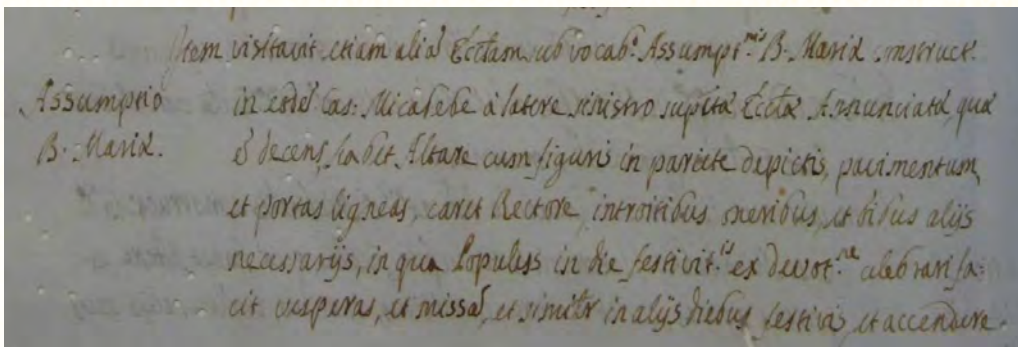 Item visitavit etiam aliã Eccłam sub vocab.º Assumpt.nis B. Mariæ construct.
Assumptio
B. Mariæ.
in eodẽ Cas: Micabebe à latere sinistro supãtæ Eccłæ Annunciatæ, quæ
ẽ decens, habet Altare cum figuris in pariete depictis, pavimentum,
et portas ligneas, caret Rectore, introitibus, oneribus, et oibus alijs
necessarijs, in qua Populus in die festivit.is ex devot.ne celebrari fa:
cit vesperas, et missã, et similr in alijs diebus festivis, et accendere